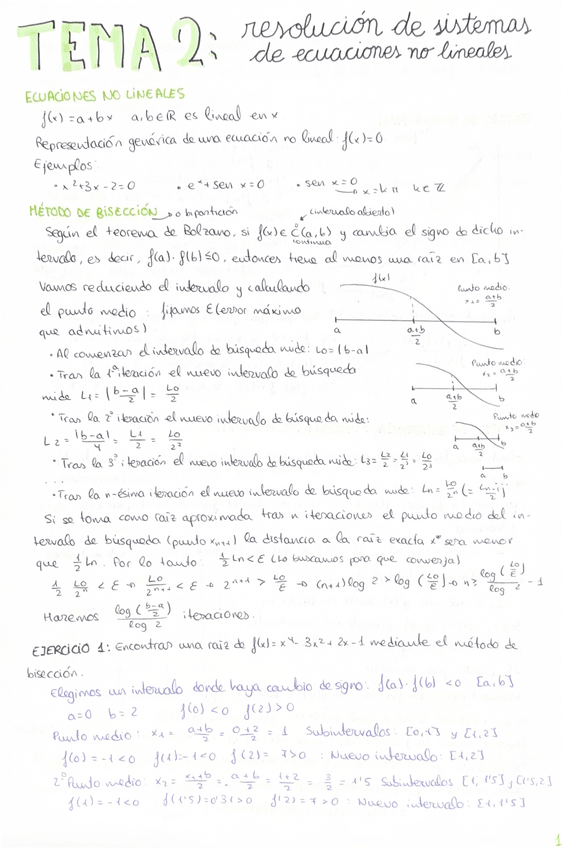 TEMA 2: resolución de sistemas
de ecuaciones no lineales
ECUACIONES NO LINEALES
f(x) = a+bx a,b∈R es lineal en x
Representación genérica de una ecuación no lineal f(x)=0
Ejemplos:
· x²+3x-2=0 · eˣ+sen x=0 · sen x=0 → x=kπ k∈Z
MÉTODO DE BISECCIÓN → o bipartición (intervalo abierto)
Según el teorema de Bolzano, si f(x)∈C⁰(a,b) y cambia el signo de dicho in-
continua
tervalo, es decir, f(a)·f(b)≤0, entonces tiene al menos una raíz en [a,b]
Vamos reduciendo el intervalo y calculando
el punto medio: fijamos E(error máximo
que admitimos)
f(x)
Punto medio:
x₁ = a+b/2
a a+b/2 b
· Al comenzar el intervalo de búsqueda mide: L₀=|b-a|
· Tras la 1ª iteración el nuevo intervalo de búsqueda
mide L₁ = |b-a/2| = L₀/2
Punto medio
x₂ = a+b/2
a a+b/2 b
· Tras la 2ª iteración el nuevo intervalo de búsqueda mide:
L₂ = |b-a|/4 = L₁/2 = L₀/2²
Punto medio
x₃ = a+b/2
a a+b/2 b
· Tras la 3ª iteración el nuevo intervalo de búsqueda mide: L₃ = L₂/2 = L₁/2² = L₀/2³
a b
...
· Tras la n-ésima iteración el nuevo intervalo de búsqueda mide: Ln = L₀/2ⁿ (= Ln-1/2)
Si se toma como raíz aproximada tras n iteraciones el punto medio del in-
tervalo de búsqueda (punto xₙ₊₁) la distancia a la raíz exacta x* será menor
que 1/2 Ln. Por lo tanto: 1/2 Ln < E (lo buscamos para que converja)
1/2 L₀/2ⁿ < E → L₀/2ⁿ⁺¹ < E → 2ⁿ⁺¹ > L₀/E → (n+1) log 2 > log (L₀/E) → n ≥ log(L₀/E)/log 2 - 1
Haremos log(b-a/2)/log 2 iteraciones.
EJERCICIO 1: Encontrar una raíz de f(x)=x⁴-3x²+2x-1 mediante el método de
bisección.
Elegimos un intervalo donde haya cambio de signo: f(a)·f(b) <0 [a,b]
a=0 b=2 f(0)<0 f(2)>0
Punto medio: x₁ = a+b/2 = 0+2/2 = 1 Subintervalos: [0,1] y [1,2]
f(0)=-1<0 f(1)=-1<0 f(2)=7>0 : Nuevo intervalo: [1,2]
2º Punto medio: x₂ = x₁+b/2 = a+b/2 = 1+2/2 = 3/2 = 1'5 Subintervalos [1,1'5], [1'5,2]
f(1)=-1<0 f(1'5)=0'31>0 f(2)=7>0 : Nuevo intervalo: [1,1'5]
1